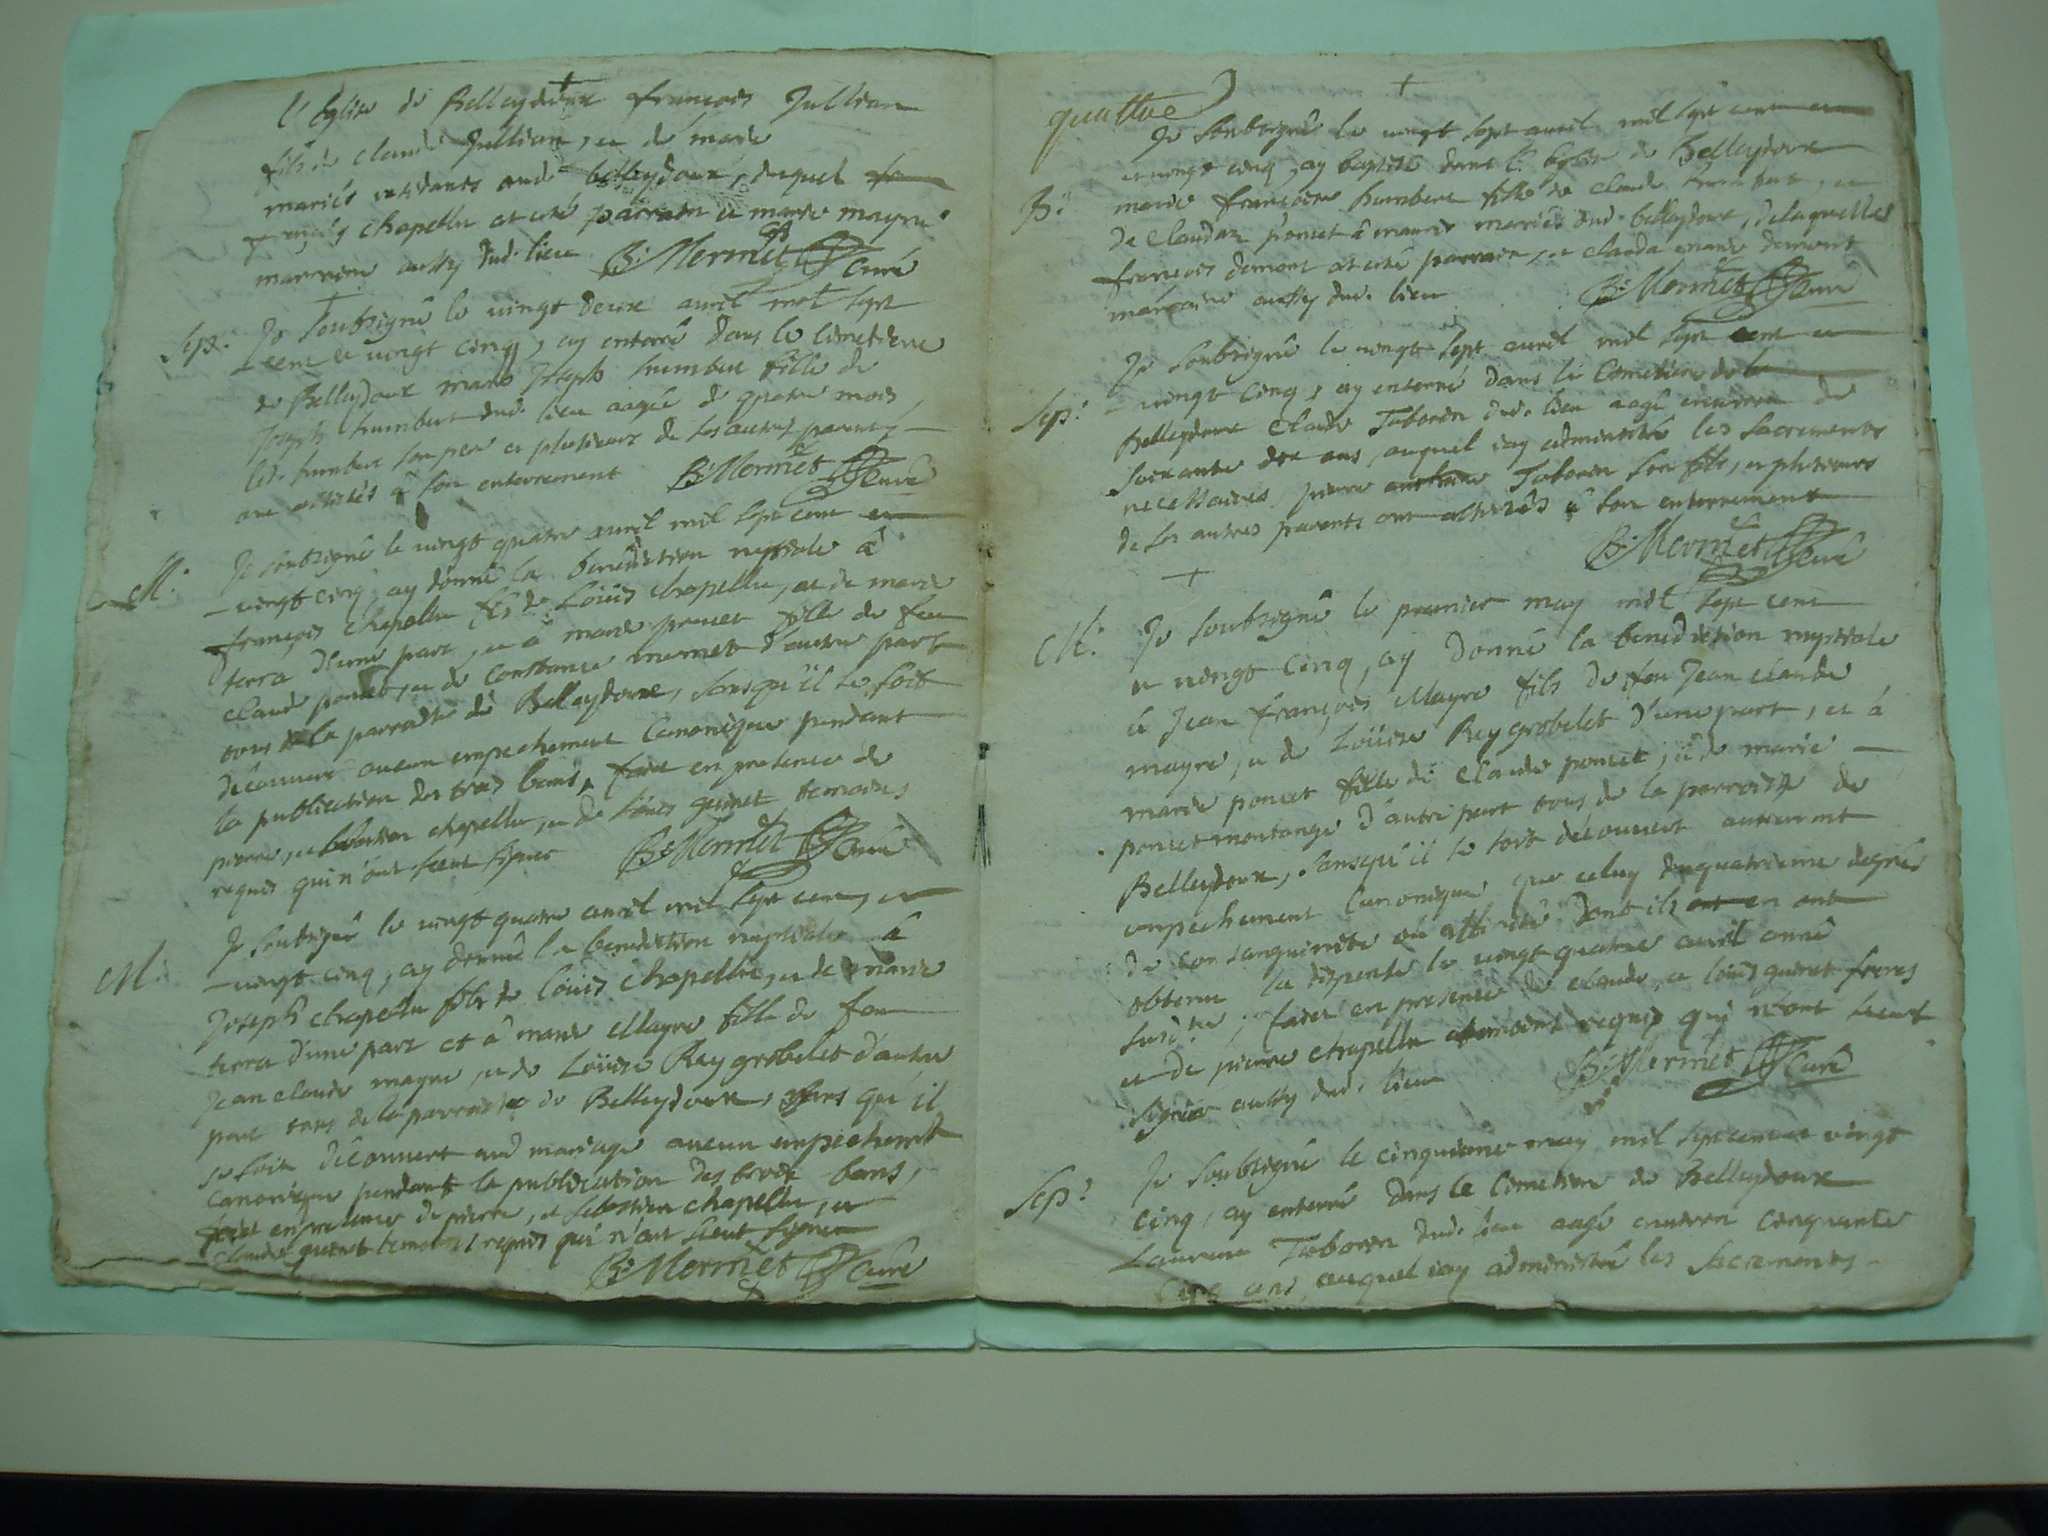 l'Eglise de Belleydoux françois Jullian
fils de claude Jullian, et de marie
mariés residants aud. belleydoux, duquel
françois chapellu at eté parrain et marie mayre
marreine aussy dud. lieu B. Mermet Curé
Sep: Je soubsigné le vingt deux avril mil sept
cent et vingt cinq, ay enterré dans le cimetiere
de Belleydoux marie Joseph humbert fille de
Joseph humbert dud. lieu aagée de quatre mois,
led. humbert son pere et plusieurs de ses autres parents
ont assistés à son enterrement B. Mermet Curé
M: Je soubsigné le vingt quatre avril mil sept cent et
vingt cinq ay donné la benediction nuptiale à
françois chapellu fils de Loüis chapellu, et de marie
terra d'une part, et à marie poncet fille de feu
claude poncet, et de Constance mermet d'autre part
tous de la parroisse de Belleydoux, sans qu'il se soit
découvert aucun empechement Canonique pendant
la publication des trois bans, fait en presence de
pierre, et sebastien chapellu, et de loüis guinet temoins
requis qui n'ont sceut signer B. Mermet Curé
M: Je soubsigné le vingt quatre avril mil sept cent, et
vingt cinq, ay donné la benediction nuptiale à
Joseph chapellu fils de loüis chapellu, et de marie
terra d'une part et à marie Mayre fille de feu
Jean claude mayre, et de Loüise Reygrobelet d'autre
part tous de la parroisse de Belleydoux, sans qu'il
se soit découvert aud. mariage aucun empechement
canonique pendant la publication des trois bans,
fait en presence de pierre, et sebastien chapellu, et
claude guinet temoins requis qui n'ont sceut signer
B. Mermet Curé
quattre
Je soubsigné le vingt sept avril mil sept cent et
et vingt cinq, ay baptisé dans l'Eglise de Belleydoux
B: marie françoise humbert fille de claude humbert, et
de Claudaz poncet à maurie mariés dud. belleydoux, delaquelle
françois dumont at eté parrain, et clauda marie dumont
marraine aussy dud. lieu B. Mermet Curé
Je soubsigné le vingt sept avril mil sept cent et
vingt cinq, ay enterré dans le Cimetiere de
Sep: Belleydoux Claude Taborin dud. lieu aagé environ de
soixante dix ans, auquel iay administré les sacrements
necessaires pierre Taborin son fils, et plusieurs
de ses autres parents ont assistés à son enterrement
B. Mermet Curé
M: Je soubsigné le premier may mil sept cent
et vingt cinq, ay donné la benediction nuptiale
à Jean françois Mayre fils de feu Jean claude
mayre, et de Loüise Reygrobelet d'une part, et à
marie poncet fille de Claude poncet, et de marie
poncet montange d'autre part tous de la parroisse de
Belleydoux, sans qu'il se soit découvert autrement
empechement Canonique que celuy du quatrieme degré
de consanguinité ou affinité dont ils en ont
obtenu la dispense le vingt quatre avril année
susd.te, fait en presence de claude, et loüis guinet freres
et de pierre chapellu temoins requis qui n'ont sceut
signer aussy dud. lieu B. Mermet Curé
Sep: Je soubsigné le cinquieme may mil sept cent et vingt
cinq, ay enterré dans le Cimetiere de Belleydoux
Laurent Taborin dud. lieu aagé environ cinquante
cinq ans, auquel iay administré les sacrements